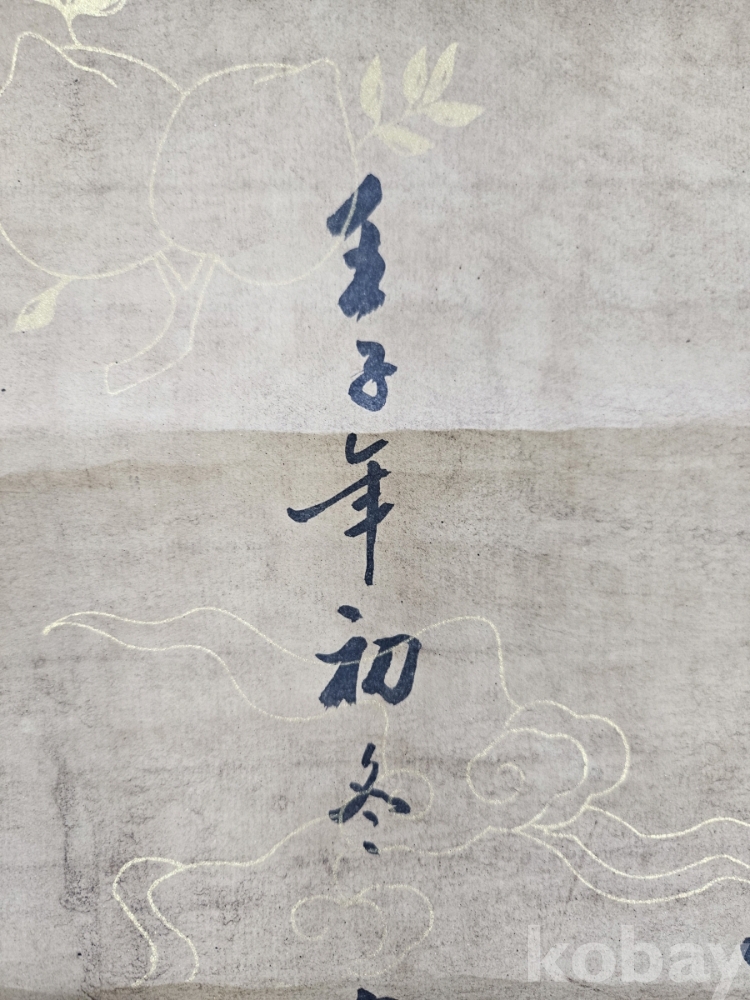 壬子年初冬
kobay